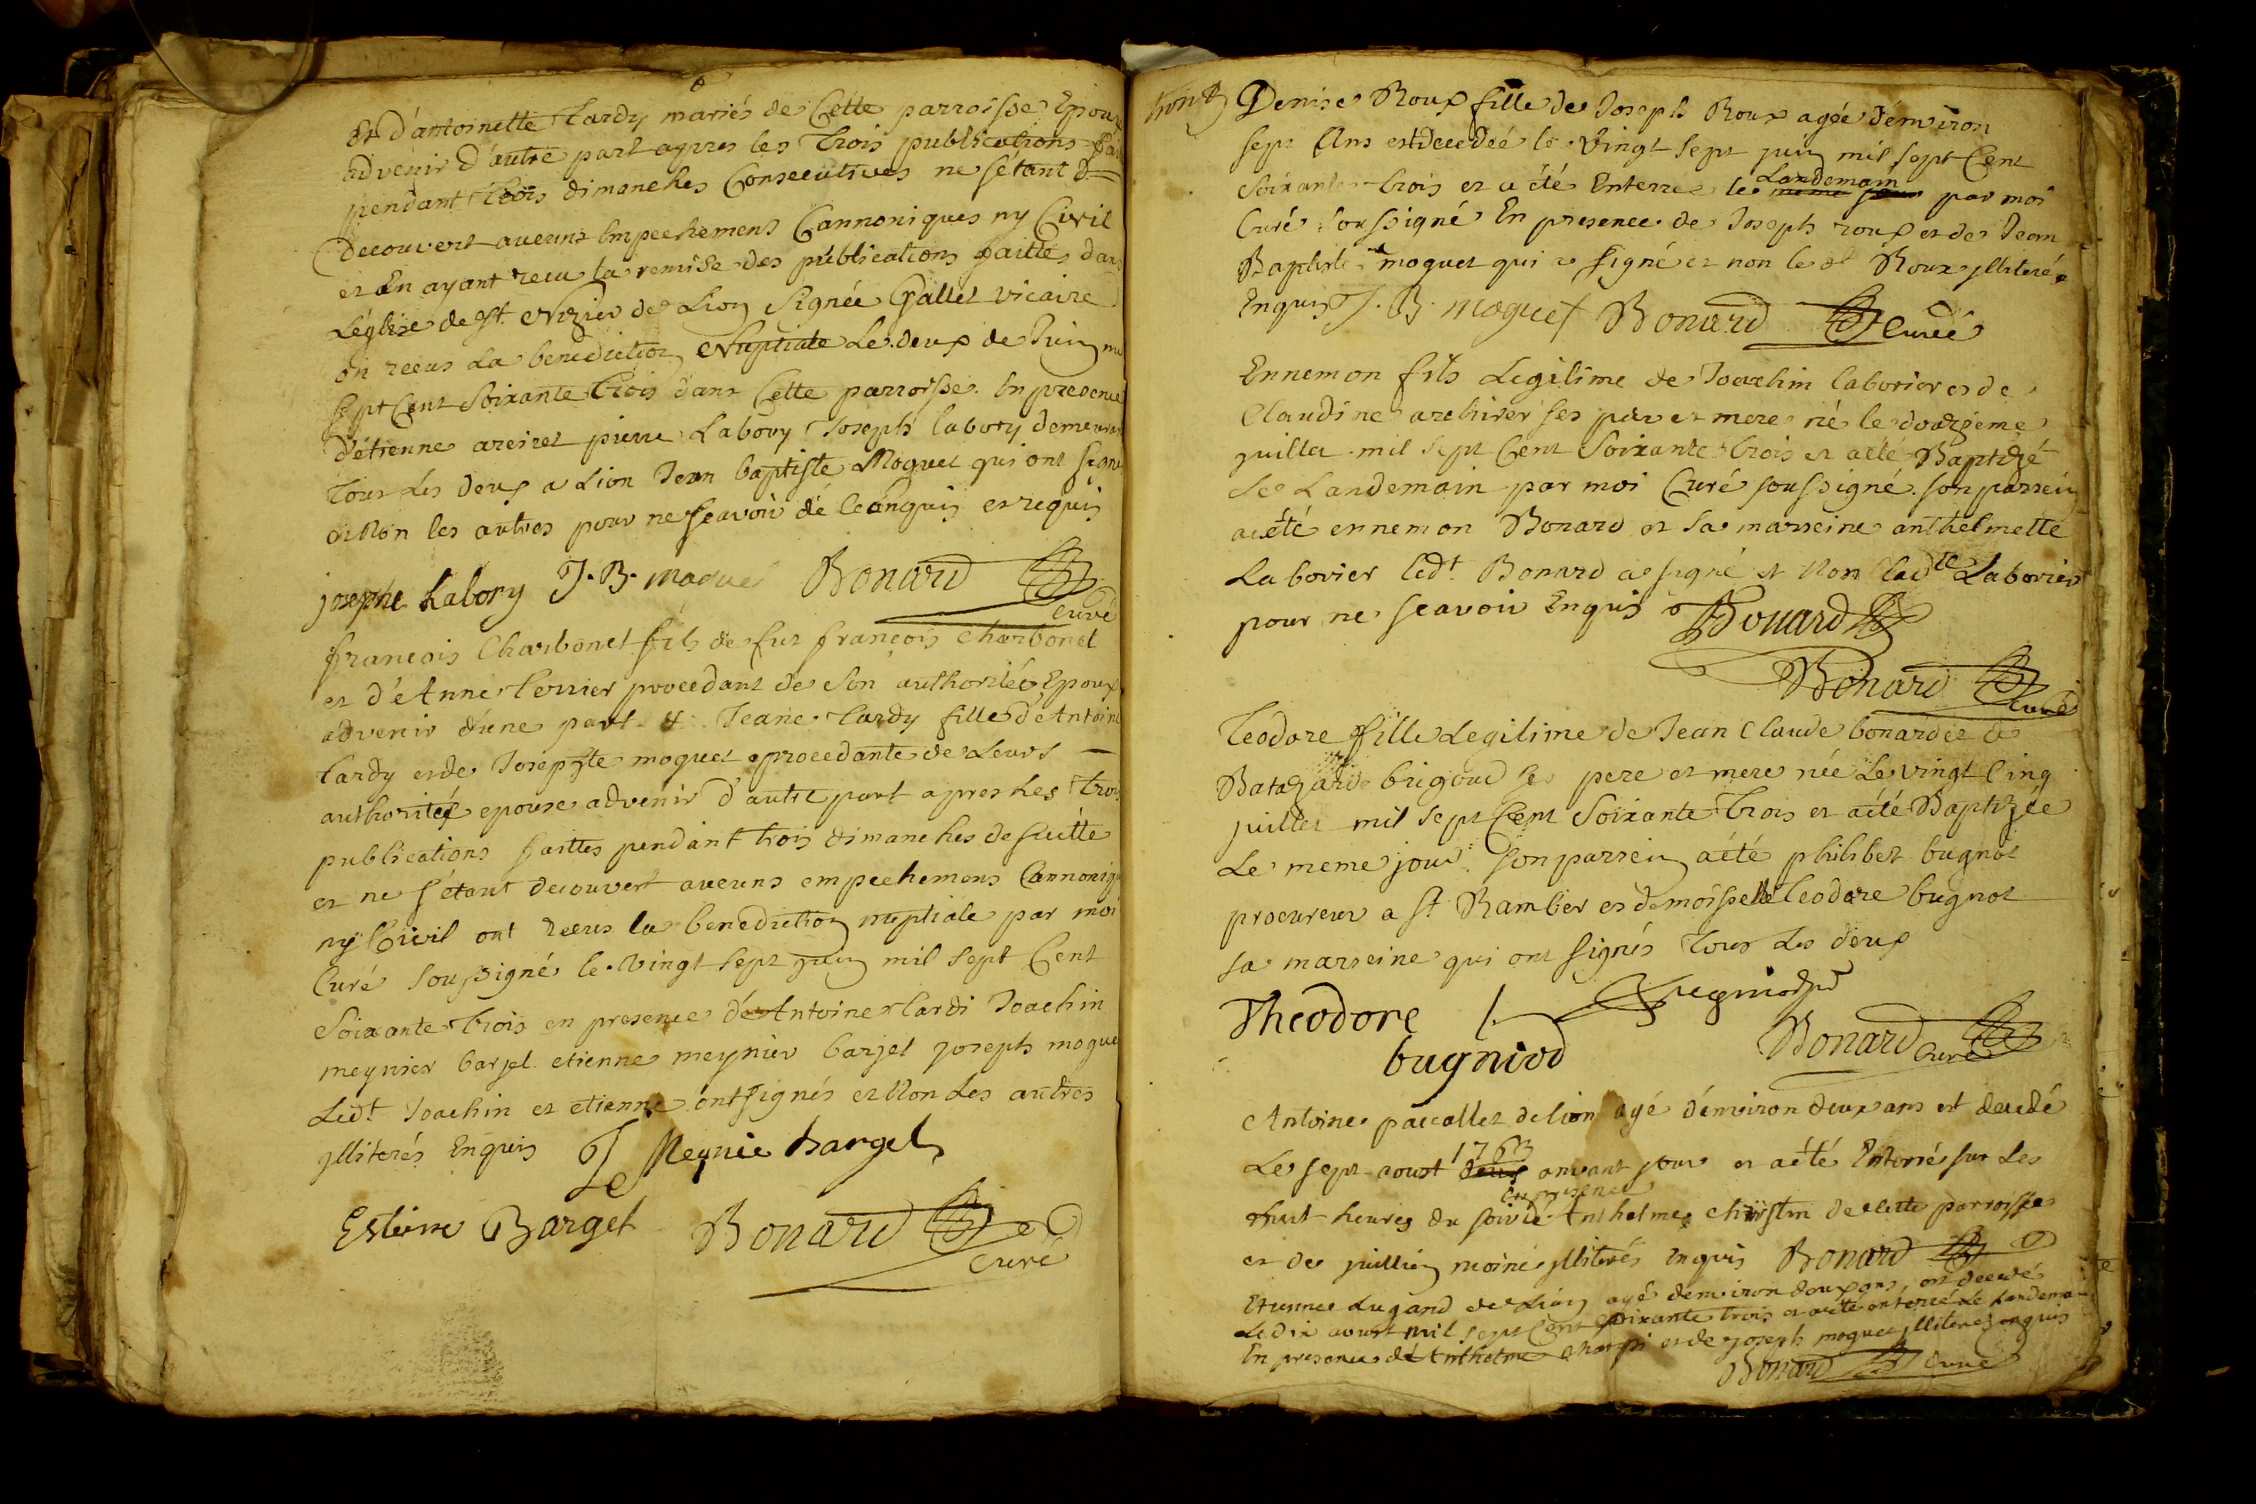 et d'antoinette Tardy mariés de Cette parroisse Epouse
advenir d'autre part apres les Trois publications
pendant Trois dimanches Consecutives ne s'étant d
decouvert aucuns Empechemens Cannoniques ny Civil
et En ayant recu la remise des publications faittes dans
L'église de St. Nizier de Lion Signée Gallet vicaire
on recus La benediction Nuptiale Le deux de Juin mil
sept Cent Soixante Trois dans Cette parroisse. En presence
d'étienne pierre Labory Joseph labory demeurant
Tous Les deux a Lion Jean baptiste Moguet qui ont signé
et Non les autres pour ne sçavoir de ce enquis et requis
josephe Labory J. B. moguet Bonard
curé
francois Charbonet fils de fut françois Charbonet
et d'Anne Terrier procedant de Son authorité Epoux
advenir d'une part et Jeane Tardy fille d'Antoine
Tardy et de Josephte moguet procedante de Leurs
authorités epouse advenir d'autre part apres Les Trois
publications faittes pendant trois dimanches de suitte
et ne s'étant decouvert aucuns empechemens Cannonique
ny Civil ont recus la benediction nuptiale par moi
Curé Soussigné le Vingt sept juin mil sept Cent
Soixante Trois en presence d'Antoine Tardi Joachin
meynier barjel etienne meynier barjel joseph moguet
Ledt. Joachin et etienne ont signés et Non Les autres
jlliterés Enquis J Meynie bargel
Estiene Barget Bonard
curé
Denise Roux fille de Joseph Roux agée d'environ
sept Ans est decedée le Vingt sept juin mil sept Cent
Landemain
Soixante trois et a été Enterrée le meme jour par moi
Curé soussigné En presence de Joseph roux et de Jean
Baptiste moguet qui a signé et non led Roux jlliteré
Enquis J. B. moguet Bonard Curé
Ennemon fils Legitime de Joachin laborier et de
Claudine archirer ses pere et mere né le douzieme
juillet mil sept Cent Soixante trois et a été Baptizé
Le Landemain par moi Curé soussigné. son parrein
a été ennemon Bonard et sa marreine anthelmette
Laborier ledt. Bonard a signé et Non ladte Laborier
pour ne sçavoir Enquis Bonard
Bonard
curé
Teodore fille Legitime de Jean Claude bonardet de
brigoud ses pere et mere née Le vingt Cinq
juillet mil sept Cent Soixante Trois et a été Baptizée
Le meme jour son parrein a été philibet bugnot
procureur a St. Rambert et demoisselle Teodore bugnot
sa marreine qui ont signés Tous Les deux
Theodore
bugniod Bonard
curé
Antoine pacallet de lion agé d'environ deux ans est decedé
1763
Le sept aoust deux jour et a été Enterré sur Les
en presence
huit heures du soir d'Anthelme de cette parroisse
et de juillien moine jlliterés Enquis Bonard
Etienne Lugand de Lion agé d'environ deux ans, est decedé
Le dix aoust mil sept Cent soixante trois et a été enterré Le Landemain
En presence d'Anthelme et de joseph moguet jlliterés enquis
Bonard Curé